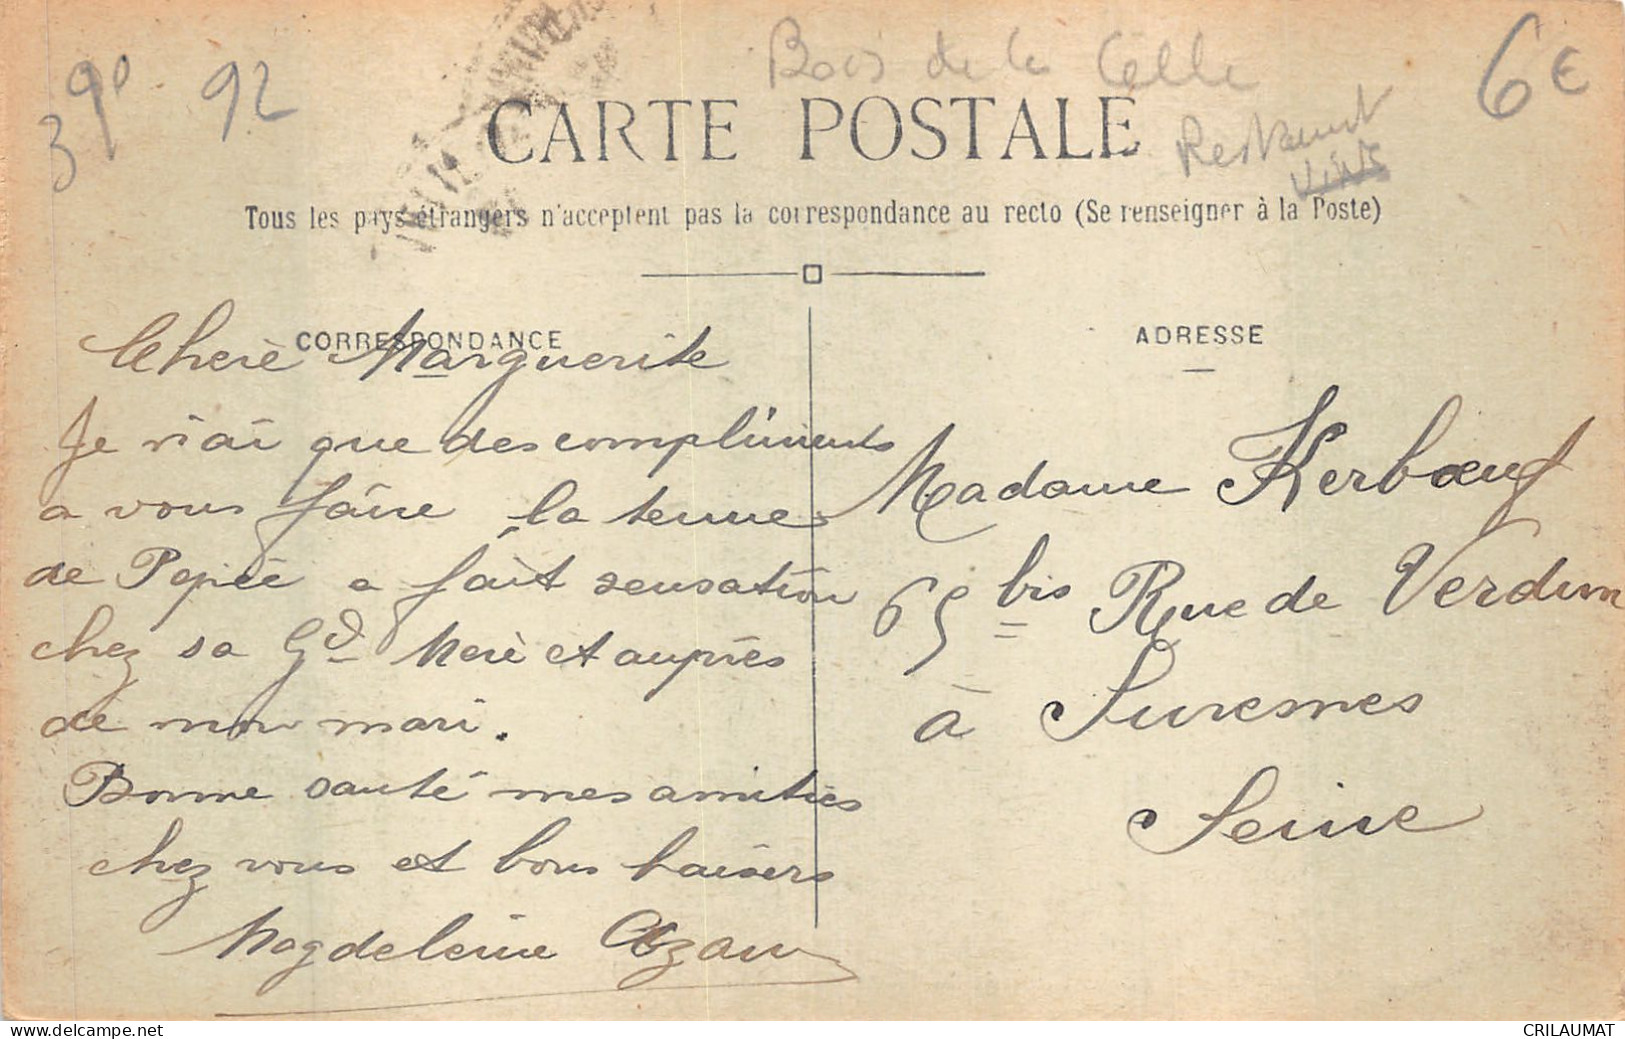 39° 92
Bois de la Celle
6€
CARTE POSTALE
Restaurant
Vins
Tous les pays étrangers n'acceptent pas la correspondance au recto (Se renseigner à la Poste)
CORRESPONDANCE
Cherè Marguerite
Je n'ai que des compliments
a vous faire la tenue
de Pepieè a fait sensation
chez sa Gd Merè et auprès
de mon mari.
Bonne santé mes amitiés
chez vous et bons baisers
Magdeleine Ozan
ADRESSE
Madame Kerbœuf
65 bis Rue de Verdun
à Suresnes
Seine
www.delcampe.net
CRILAUMAT